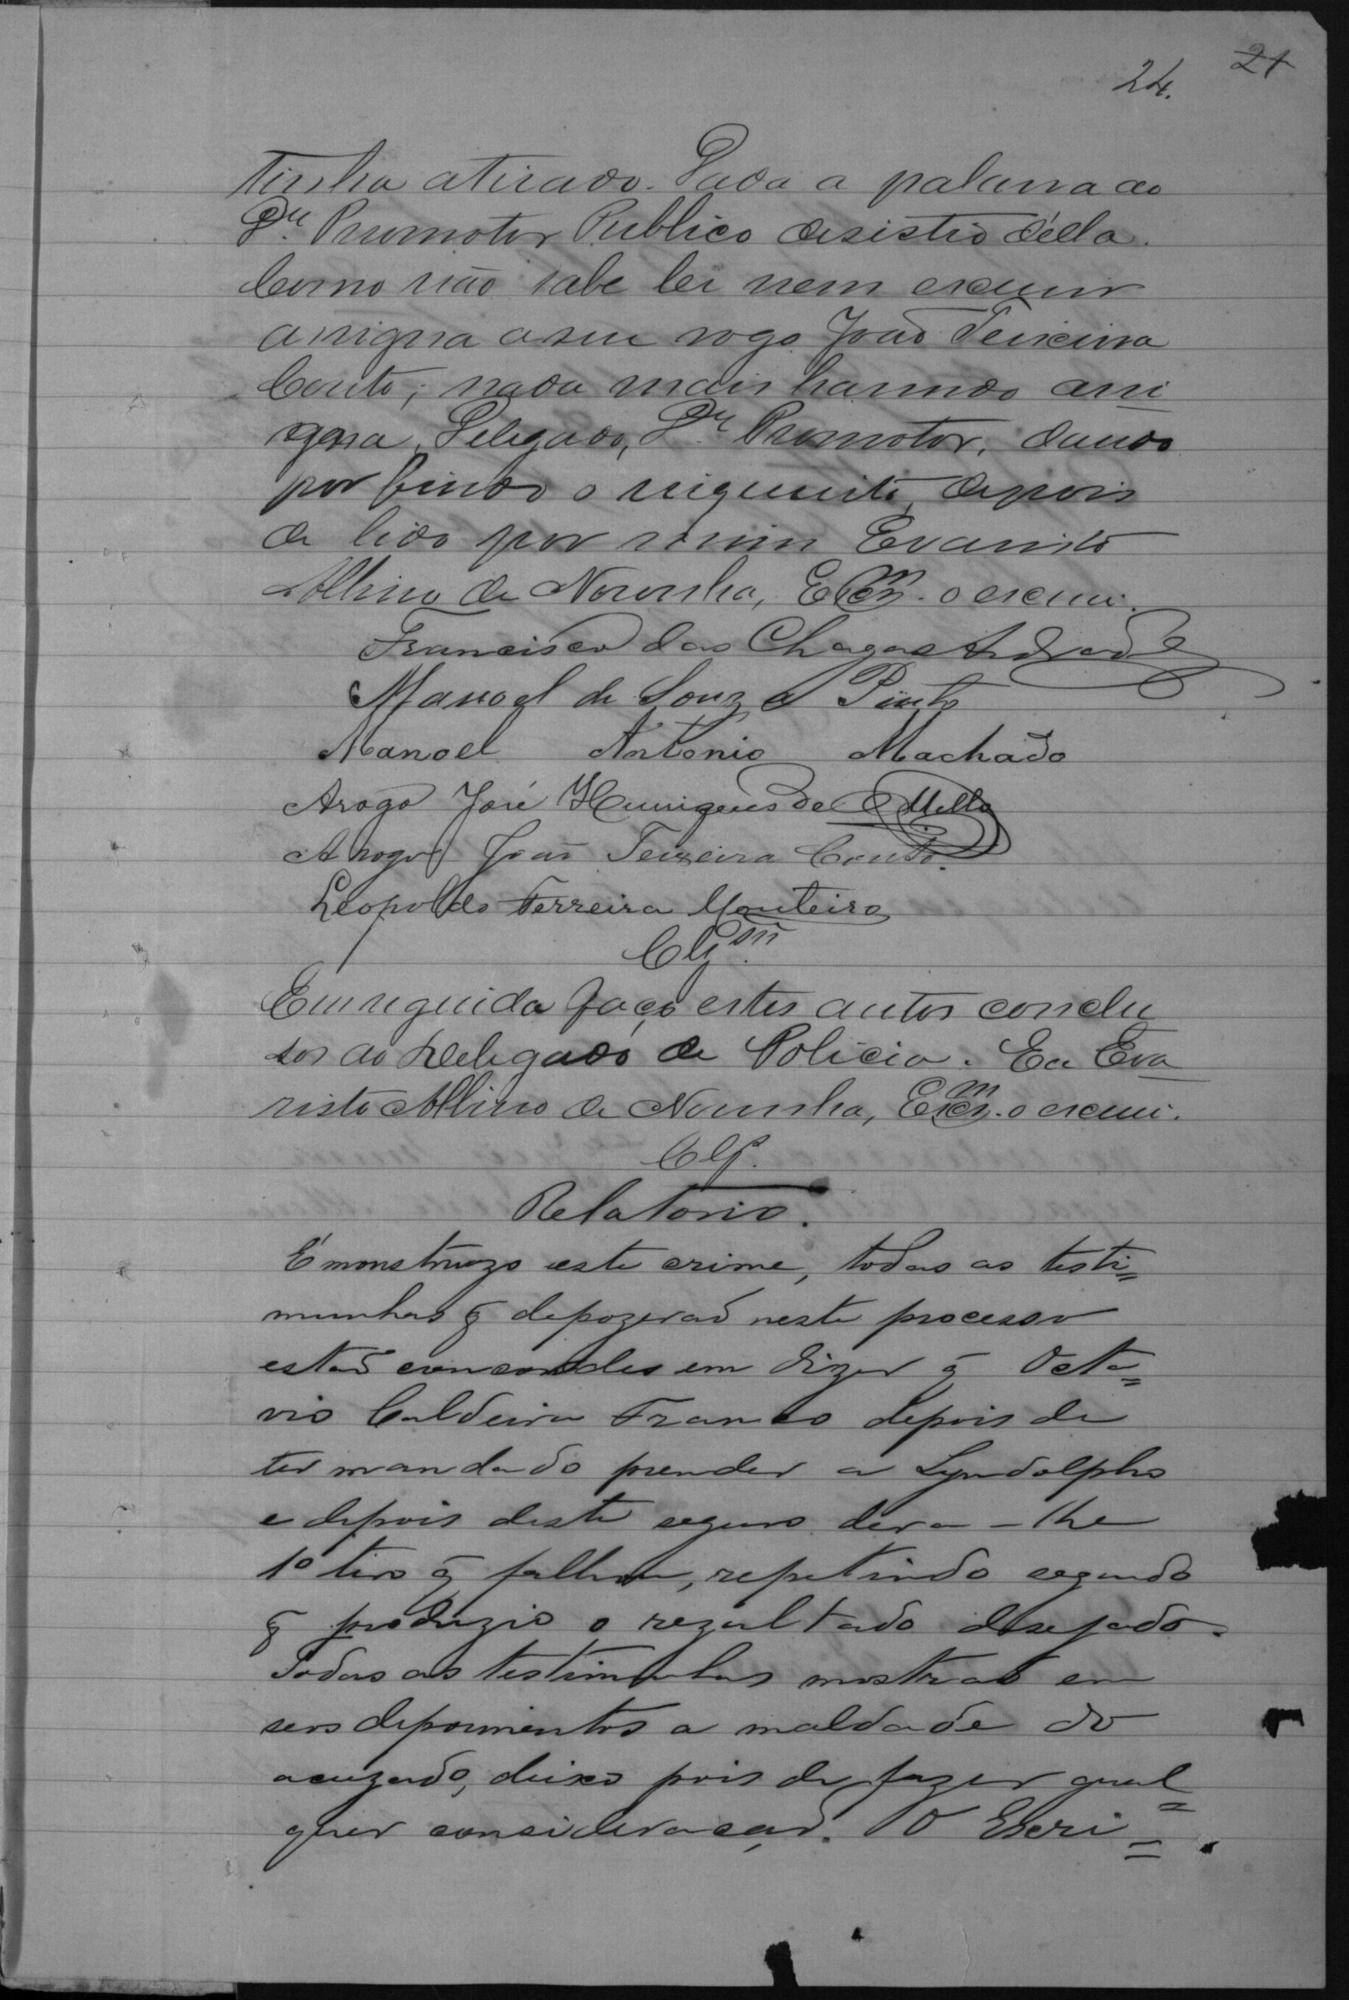 24. 21
tinha atirado. Dada a palavra ao
Dr. Promotor Publico desistio d'ella.
Como não sabe ler nem escrever
assigna a seu rogo João Teixeira
Couto; nada mais havendo assi
gna, Delegado, Dr. Promotor, dando
por findo o inquerito, depois
de lido por mim Evaristo
Albino de Noronha, Escm. o escrevi.
Francisco das Chagas Andrade
Manoel de Souza Pinto
Manoel Antonio Machado
Arogo José Henriques de Mello
Arogo João Teixeira Couto.
Leopoldo Ferreira Monteiro
Clzm
Em seguida faço estes autos conclu
sos ao Delegado de Policia. Eu Eva
risto Albino de Noronha, Escm. o escrevi.
Clz.
Relatorio.
É monstruozo este crime, todas as testi=
munhas q̃ depozeraõ neste processo
estaõ concordes em dizer q̃ Octa=
vio Caldeira Franco depois de
ter mandado prender a Lyndolpho
e depois deste seguro dera-lhe
1º tiro q̃ falhou, repetindo segundo
q̃ produzio o rezultado desejado.
Todas as testimunhas mostraõ em
seos depoimentos a maldade do
acuzado, deixo pois de fazer qual=
quer consideraçaõ. O Escri=